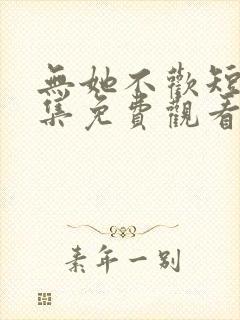 無她不歡短
集免費觀看
素年一別